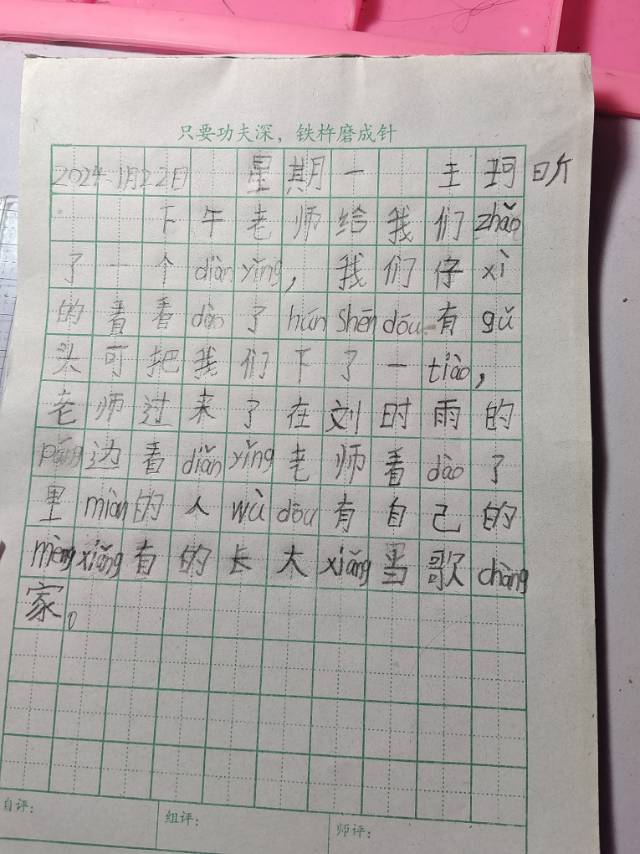 只要功夫深，铁杵磨成针
2024.1月22日 星期一 王珂昕
下午老师给我们zhǎo
了一个diàn yǐng，我们仔xì
的看看dào了hún shēn dōu有gǔ
头可把我们下了一tiào，
老师过来了在刘时雨的
páng边看diǎn yǐng老师看dào了
里miàn的人wù dōu有自己的
mèng xiǎng有的长大xiǎng当歌chàng
家。
自评：
组评：
师评：